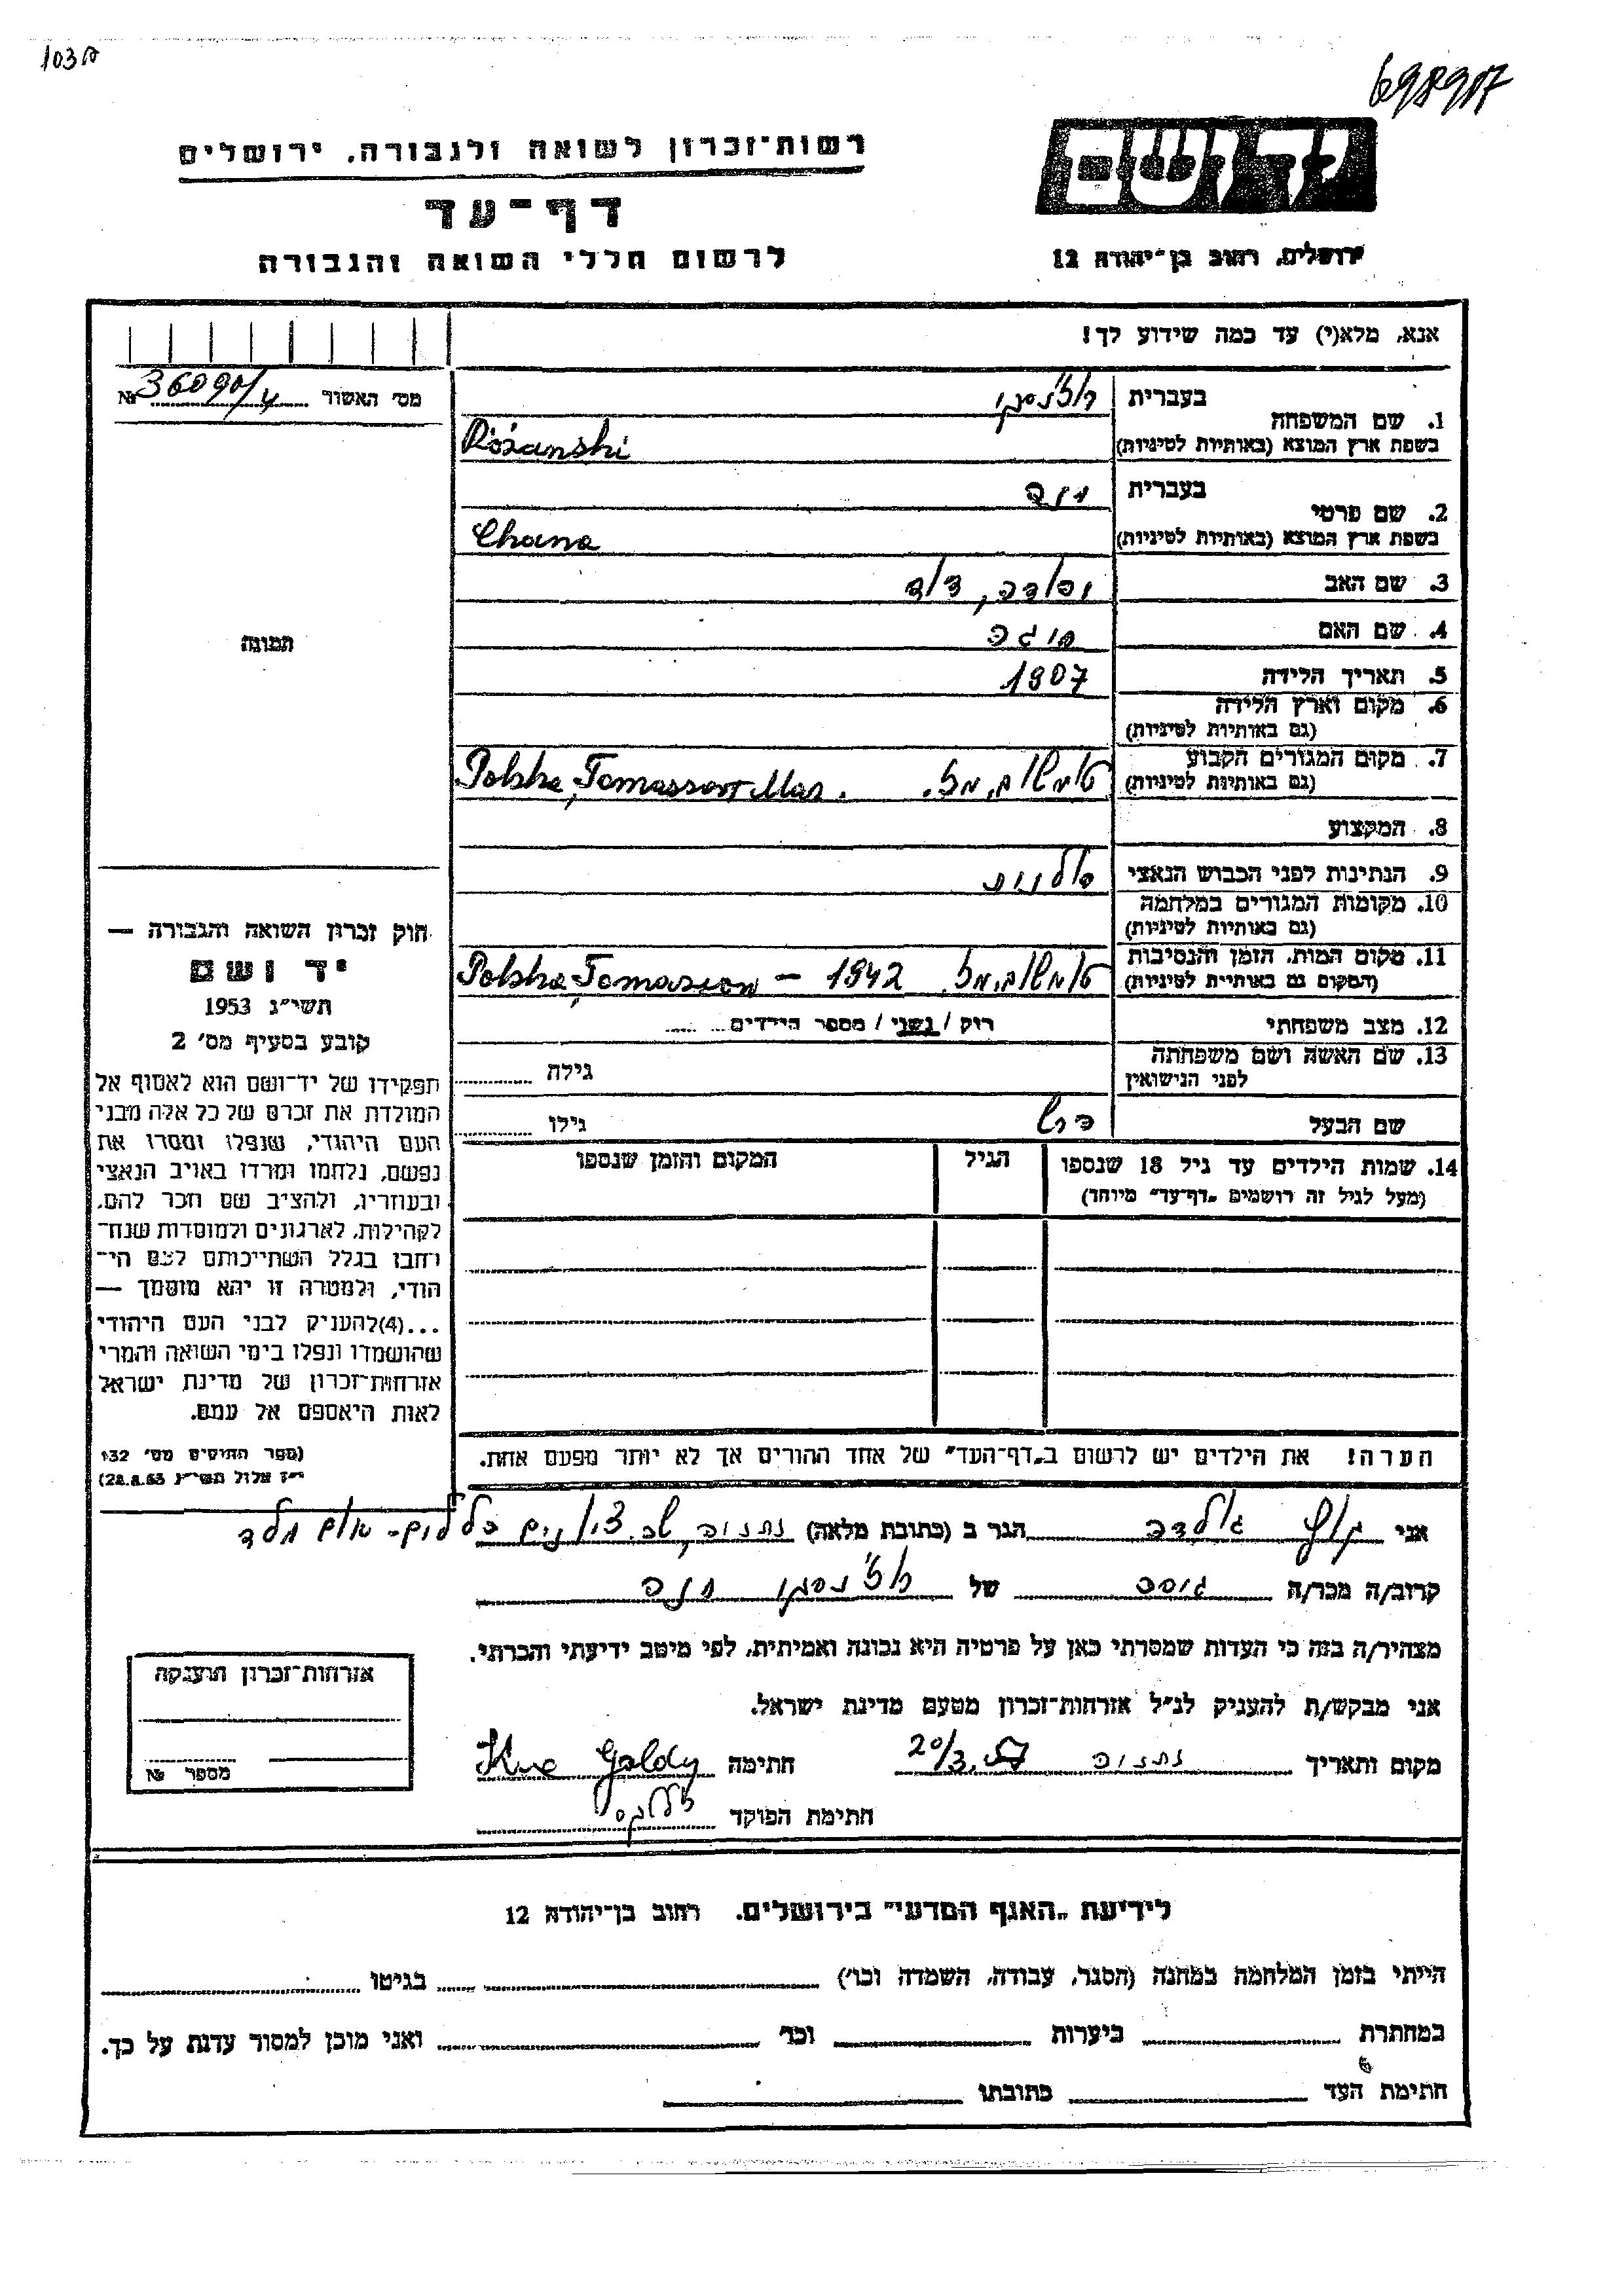 103א
698917
יד ושם
רשות־זכרון לשואה ולגבורה, ירושלים
דף־עד
לרשום חללי השואה והגבורה
ירושלים, רחוב בן־יהודה 12
אנא, מלא(י) עד כמה שידוע לך!
מס׳ האשור 36090/4 №
1. שם המשפחה
בעברית רוז'נסקי
בשפת ארץ המוצא (באותיות לטיניות) Różanski
2. שם פרטי
בעברית חנה
בשפת ארץ המוצא (באותיות לטיניות) Chana
3. שם האב
4. שם האם
5. תאריך הלידה 1907
6. מקום וארץ הלידה
(גם באותיות לטיניות)
7. מקום המגורים הקבוע טומשוב, מז. Polska, Tomassow Maz.
(גם באותיות לטיניות)
8. המקצוע
9. הנתינות לפני הכבוש הנאצי פולנית
10. מקומות המגורים במלחמה
(גם באותיות לטיניות)
11. מקום המות, הזמן והנסיבות טומשוב, מז. 1942 – Polska, Tomasow
(המקום גם באותיות לטיניות)
12. מצב משפחתי רוק / נשוי / מספר הילדים
13. שם האשה ושם משפחתה גילה
לפני הנישואין
שם הבעל הרש גילו
14. שמות הילדים עד גיל 18 שנספו הגיל המקום והזמן שנספו
(מעל לגיל זה רושמים „דף־עד" מיוחד)
הערה! את הילדים יש לרשום ב„דף־העד" של אחד ההורים אך לא יותר מפעם אחת.
תמונה
חוק זכרון השואה והגבורה —
יד ושם
תשי״ג 1953
קובע בסעיף מס׳ 2
תפקידו של יד־ושם הוא לאסוף אל
המולדת את זכרם של כל אלה מבני
העם היהודי, שנפלו ומסרו את
נפשם, נלחמו ומרדו באויב הנאצי
ובעוזריו, ולהציב שם וזכר להם,
לקהילות, לארגונים ולמוסדות שנח־
רבו בגלל השתייכותם לעם הי־
הודי, ולמטרה זו יהא מוסמך —
...(4)להעניק לבני העם היהודי
שהושמדו ונפלו בימי השואה והמרי
אזרחות־זכרון של מדינת ישראל
לאות היאספם אל עמם.
(ספר החוקים מס׳ 132
י״ז אלול תשי״ג 28.8.53)
אני גולדה הגר ב (כתובת מלאה) נתניה,
קרוב/ה מכר/ה גיסה של רוז'נסקי חנה
מצהיר/ה בזה כי העדות שמסרתי כאן על פרטיה היא נכונה ואמיתית, לפי מיטב ידיעתי והכרתי.
אני מבקש/ת להעניק לנ״ל אזרחות־זכרון מטעם מדינת ישראל.
מקום ותאריך נתניה 20/3.57 חתימה Goldy
חתימת הפוקד
אזרחות־זכרון הוענקה
מספר №
לידיעת „האגף המדעי" בירושלים, רחוב בן־יהודה 12
הייתי בזמן המלחמה במחנה (הסגר, עבודה, השמדה וכו׳) בגיטו
במחתרת ביערות וכו׳ ואני מוכן למסור עדות על כך.
חתימת העד כתובתו